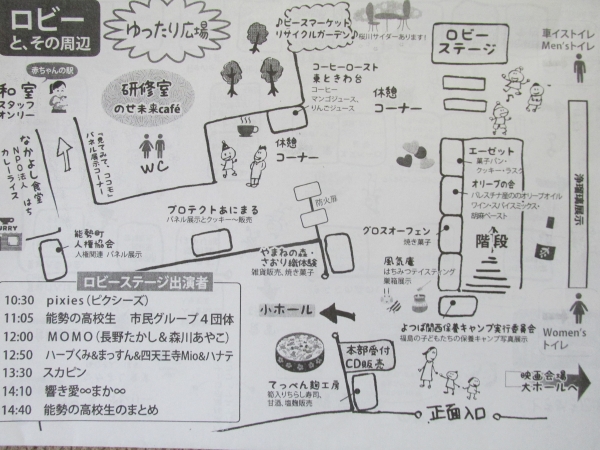 ロビー
と、その周辺
ゆったり広場
♪ピースマーケット
リサイクルガーデン♪
桜川サイダーあります!
ロビー
ステージ
車イストイレ
Men'sトイレ
赤ちゃんの駅
和室
スタッフ
オンリー
研修室
のせ未来café
コーヒーロースト
東ときわ台
コーヒー
マンゴジュース、
りんごジュース
休憩
コーナー
なかよし食堂
NPO法人 はち
カレーライス
「見てみて、ココモ」
パネル展示コーナー
WC
休憩
コーナー
エーゼット
菓子パン・
クッキー・ラスク
オリーブの会
パレスチナ産のオリーブオイル
ワイン・スパイスミックス・
胡麻ペースト
浄瑠璃展示
防火扉
プロテクトあにまる
パネル展示とクッキー販売
グロスオーフェン
焼き菓子
階段
能勢町
人権協会
人権関連 パネル展示
やまねの森・
さおり織体験
雑貨販売、焼き菓子
風気庵
はちみつテイスティング
巣箱展示
ロビーステージ出演者
10:30 pixies(ピクシーズ)
11:05 能勢の高校生 市民グループ4団体
12:00 MOMO(長野たかし&森川あやこ)
12:50 ハーブくみ&まっすん&四天王寺Mio&ハナテ
13:30 スカピン
14:10 響き愛∞まか∞
14:40 能勢の高校生のまとめ
小ホール
よつば関西保養キャンプ実行委員会
福島の子どもたちの保養キャンプ写真展示
Women's
トイレ
本部受付
CD販売
てっぺん麹工房
筍入りちらし寿司、
甘酒、塩麹販売
映画会場
大ホールへ
正面入口